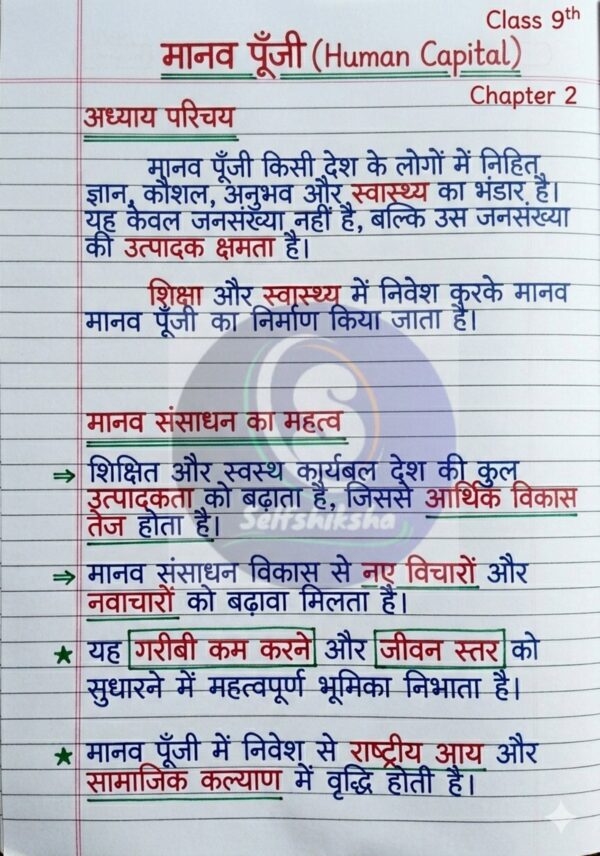 Class 9th
मानव पूँजी (Human Capital)
Chapter 2
अध्याय परिचय
मानव पूँजी किसी देश के लोगों में निहित
ज्ञान, कौशल, अनुभव और स्वास्थ्य का भंडार है।
यह केवल जनसंख्या नहीं है, बल्कि उस जनसंख्या
की उत्पादक क्षमता है।
शिक्षा और स्वास्थ्य में निवेश करके मानव
मानव पूँजी का निर्माण किया जाता है।
मानव संसाधन का महत्व
⇒ शिक्षित और स्वस्थ कार्यबल देश की कुल
उत्पादकता को बढ़ाता है, जिससे आर्थिक विकास
तेज होता है।
Selfshiksha
⇒ मानव संसाधन विकास से नए विचारों और
नवाचारों को बढ़ावा मिलता है।
★ यह गरीबी कम करने और जीवन स्तर को
सुधारने में महत्वपूर्ण भूमिका निभाता है।
★ मानव पूँजी में निवेश से राष्ट्रीय आय और
सामाजिक कल्याण में वृद्धि होती है।